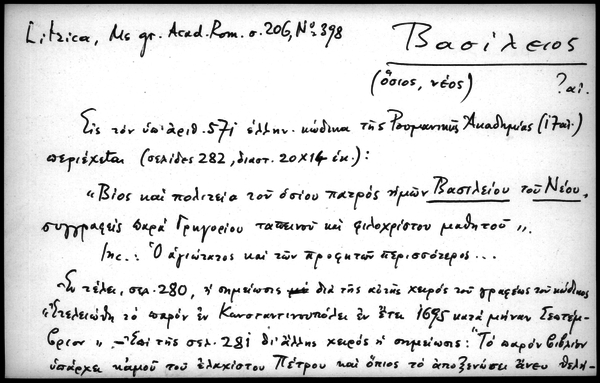 Litzica, Ms gr. Acad. Rom. σ. 206, Nο 398
Βασίλειος
(ὅσιος, νέος) ? αἰ.
Εἰς τὸν ὑπ' ἀριθ. 571 ἑλλην. κώδικα τῆς Ρουμανικῆς Ἀκαδημίας (17 αἰ.)
περιέχεται (σελίδες 282, διαστ. 20x14 ἑκ.):
«Βίος καὶ πολιτεία τοῦ ὁσίου πατρὸς ἡμῶν Βασιλείου τοῦ Νέου,
συγγραφεὶς παρὰ Γρηγορίου ταπεινοῦ καὶ φιλοχρίστου μαθητοῦ».
Inc.: Ὁ ἁγιώτατος καὶ τῶν προφητῶν περισσότερος...
Ἐν τέλει, σελ. 280, ἡ σημείωσις διὰ τῆς αὐτῆς χειρὸς τοῦ γραφέως τοῦ κώδικος
«Ἐτελειώθη τὸ παρὸν ἐν Κωνσταντινουπόλει ἐν ἔτει 1695 κατὰ μῆναν Σεπτέμ-
βριον». – Ἐπὶ τῆς σελ. 281 δι' ἄλλης χειρὸς ἡ σημείωσις: "Τὸ παρὸν βιβλίον
ὑπάρχει κἀμοῦ τοῦ ἐλαχίστου Πέτρου καὶ ὅπιος τὸ ἀποξενώσει ἄνευ θελή-